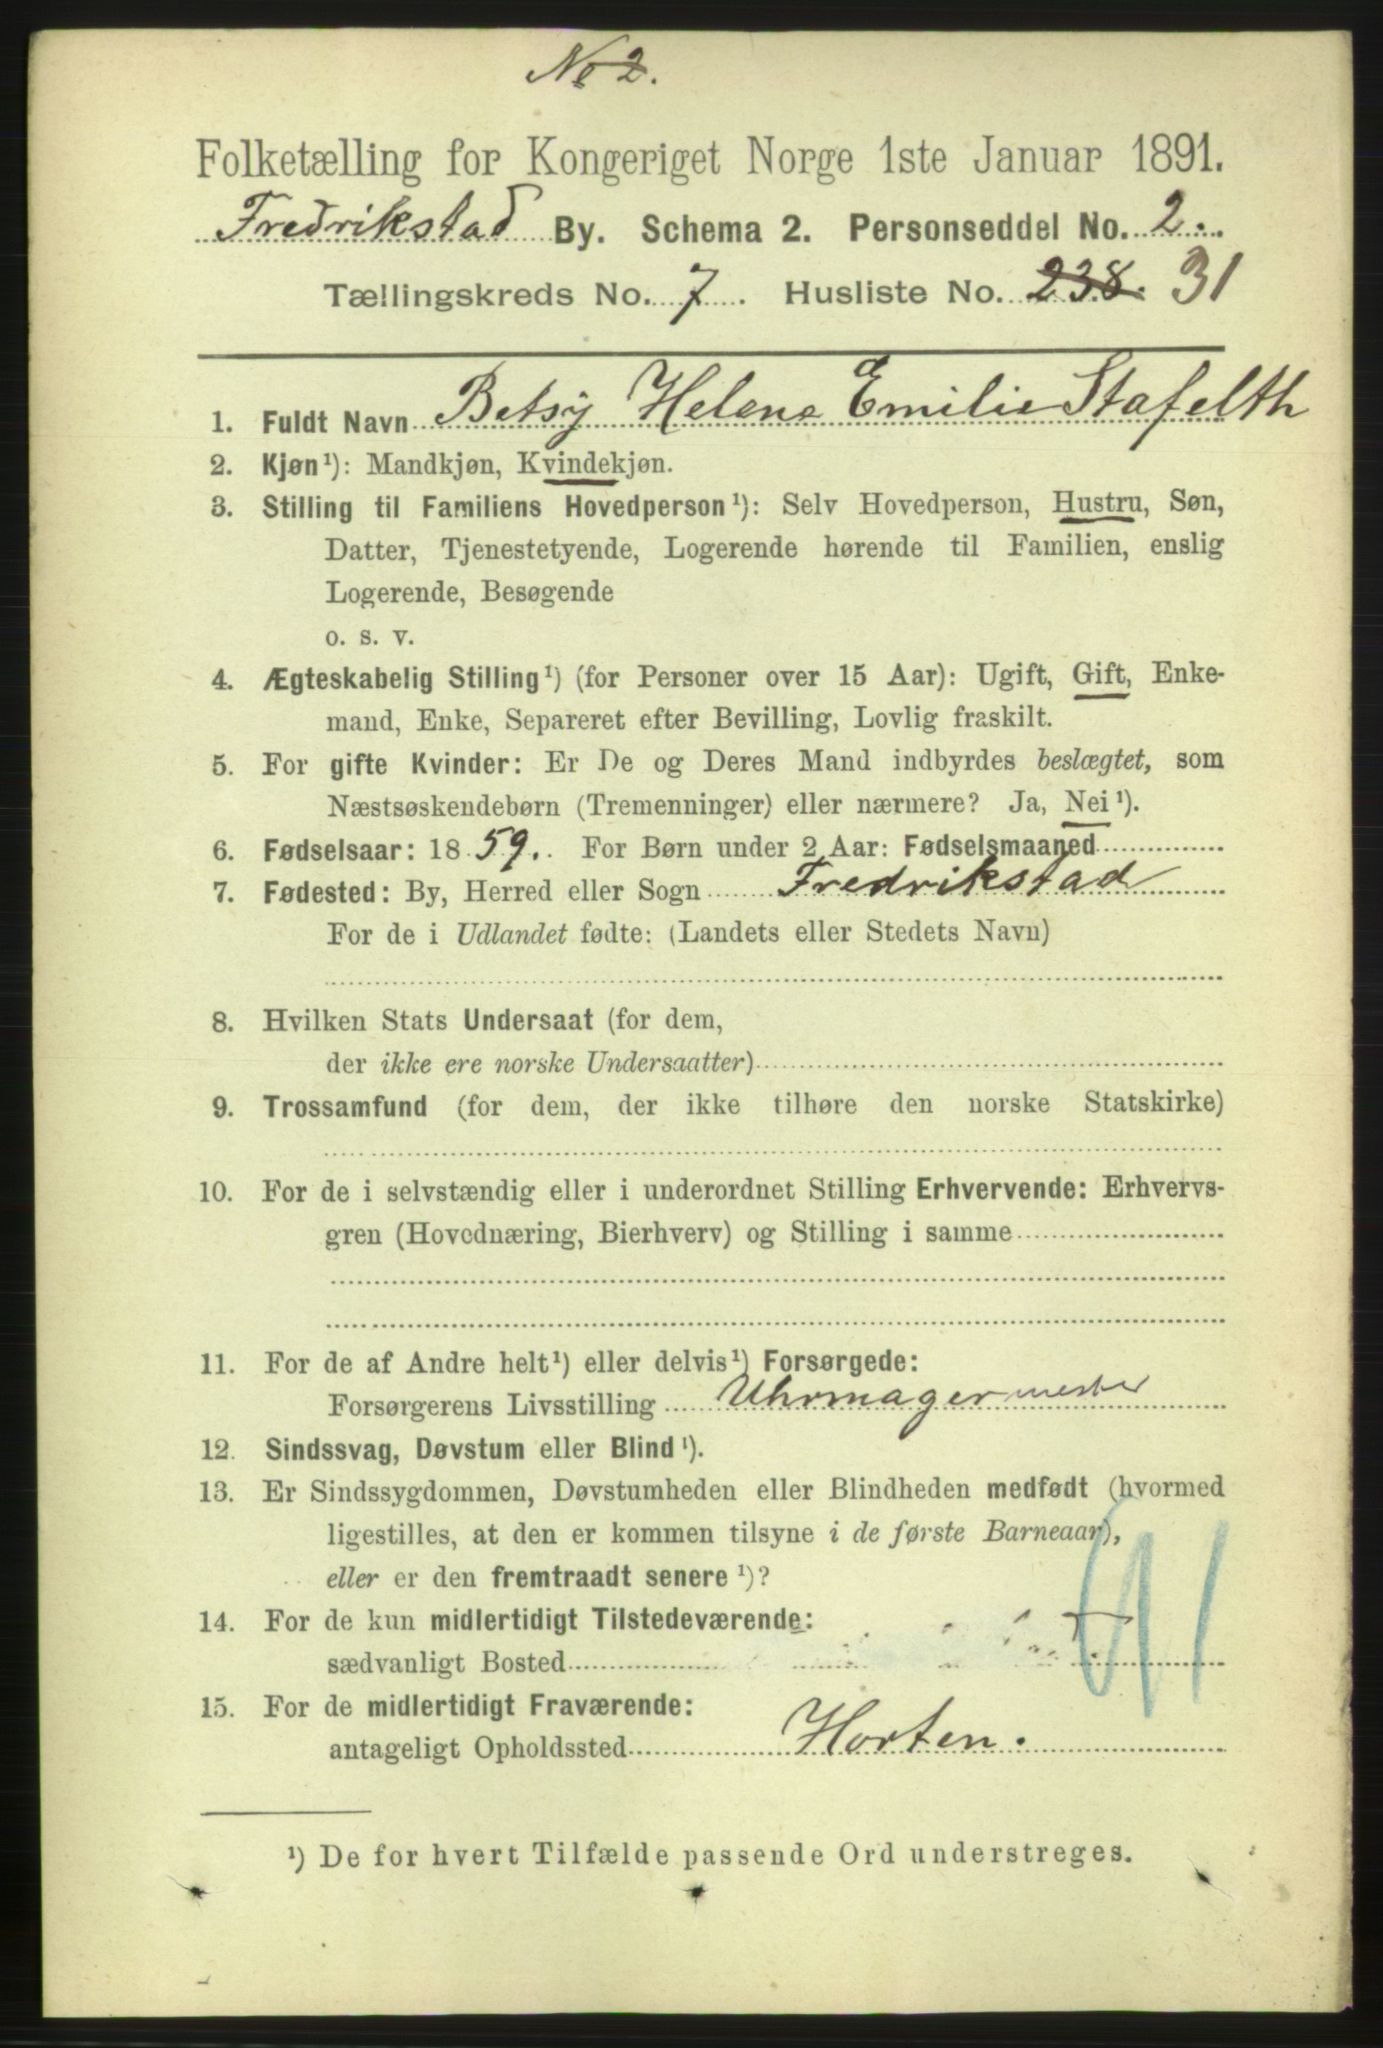 No 2.
Folketælling for Kongeriget Norge 1ste Januar 1891.
Fredrikstad By. Schema 2. Personseddel No. 2.
Tællingskreds No. 7. Husliste No. 238. 31
1. Fuldt Navn Betsy Helene Emilie Stafelth
2. Kjøn¹): Mandkjøn, Kvindekjøn.
3. Stilling til Familiens Hovedperson¹): Selv Hovedperson, Hustru, Søn,
Datter, Tjenestetyende, Logerende hørende til Familien, enslig
Logerende, Besøgende
o. s. v.
4. Ægteskabelig Stilling¹) (for Personer over 15 Aar): Ugift, Gift, Enke-
mand, Enke, Separeret efter Bevilling, Lovlig fraskilt.
5. For gifte Kvinder: Er De og Deres Mand indbyrdes beslægtet, som
Næstsøskendebørn (Tremenninger) eller nærmere? Ja, Nei¹).
6. Fødselsaar: 1859. For Børn under 2 Aar: Fødselsmaaned
7. Fødested: By, Herred eller Sogn Fredrikstad
For de i Udlandet fødte: (Landets eller Stedets Navn)
8. Hvilken Stats Undersaat (for dem,
der ikke ere norske Undersaatter)
9. Trossamfund (for dem, der ikke tilhøre den norske Statskirke)
10. For de i selvstændig eller i underordnet Stilling Erhvervende: Erhvervs-
gren (Hovednæring, Bierhverv) og Stilling i samme
11. For de af Andre helt¹) eller delvis¹) Forsørgede:
Forsørgerens Livsstilling Uhrmagermester
12. Sindssvag, Døvstum eller Blind¹).
13. Er Sindssygdommen, Døvstumheden eller Blindheden medfødt (hvormed
ligestilles, at den er kommen tilsyne i de første Barneaar),
eller er den fremtraadt senere¹)?
14. For de kun midlertidigt Tilstedeværende:
sædvanligt Bosted
15. For de midlertidigt Fraværende:
antageligt Opholdssted Horten.
¹) De for hvert Tilfælde passende Ord understreges.